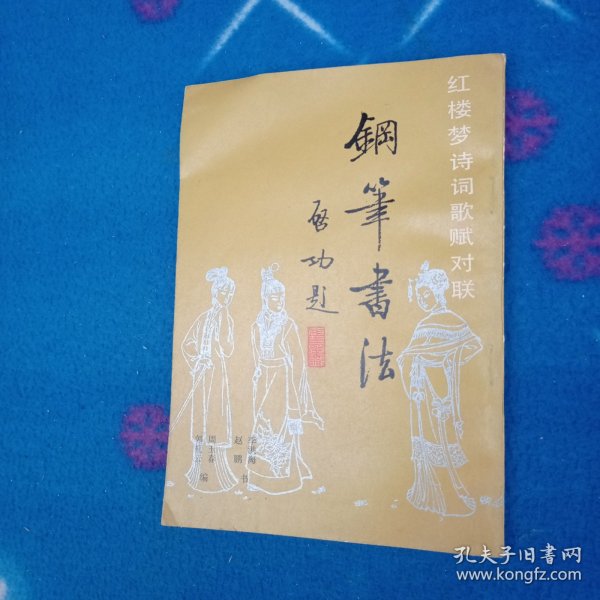 红楼梦诗词歌赋对联
鋼筆書法
启功题
赵鹏
书
周玉春
编
孔夫子旧書网
www.kongfz.com